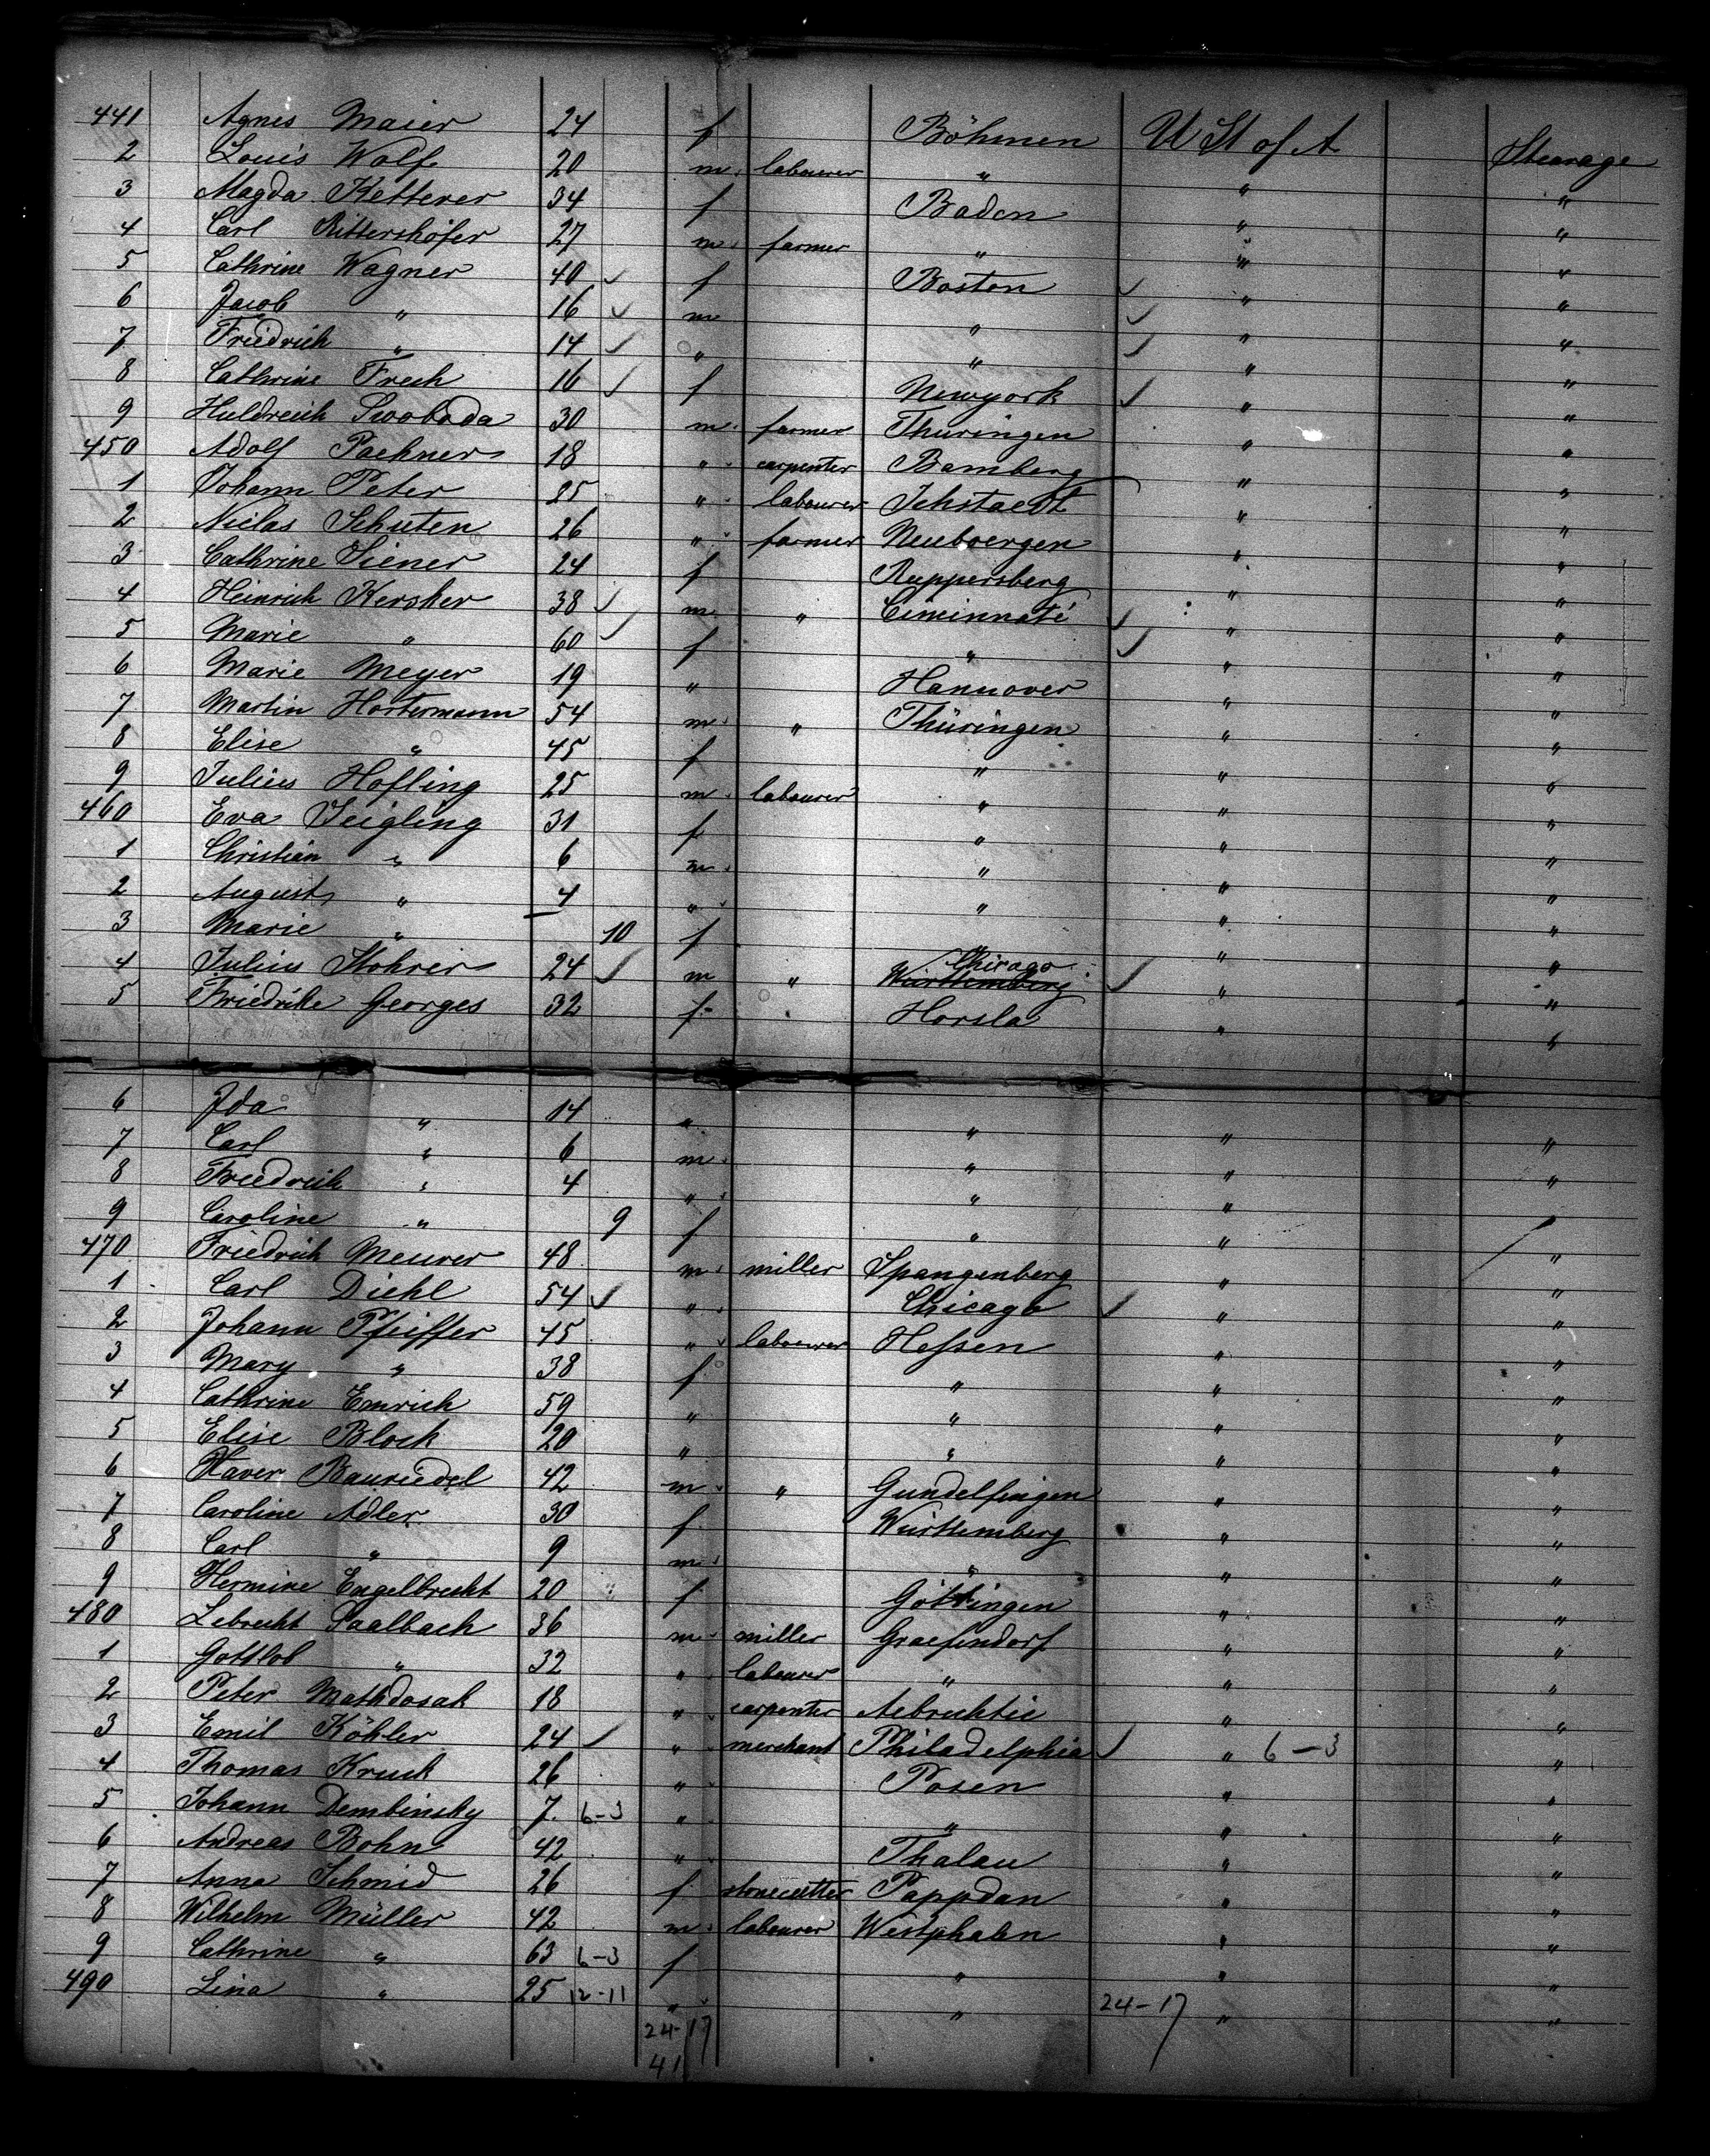 441 Agnes Maier 24 f Böhmen U St of A Stearage
2 Louis Wolf 20 m. labourer " " "
3 Magda Ketterer 34 f Baden " "
4 Carl Rittershofer 27 m. farmer " " "
5 Cathrine Wagner 40 ✓ f Boston ✓ " "
6 Jacob " 16 ✓ m " ✓ " "
7 Friedrich " 14 ✓ " " ✓ " "
8 Cathrine Frech 16 ✓ f Newyork ✓ " "
9 Huldreich Swoboda 30 m. farmer Thuringen " "
450 Adolf Pachner 18 " carpenter Bamberg " "
1 Johann Peter 25 " labourer Ichstaedt " "
2 Niclas Schuten 26 " farmer Neuboergen " "
3 Cathrine Siener 24 f Ruppersberg " "
4 Heinrich Kersker 38 ✓ m " Cincinnati ✓ " "
5 Marie " 60 ✓ f " ✓ " "
6 Marie Meyer 19 " Hannover " "
7 Martin Hortermann 54 m. " Thüringen " "
8 Elise " 45 f " " "
9 Julius Hofling 25 m. labourer " " "
460 Eva Teigling 31 f " " "
1 Christian " 6 m. " " "
2 August " 4 " " " "
3 Marie " 10 f " " "
4 Julius Stohrer 24 ✓ m " Württemberg Chicago ✓ " "
5 Friedrike Georges 32 f. Horsla " "
6 Ida " 14 " " " "
7 Carl " 6 m. " " "
8 Friedrich " 4 " " " "
9 Caroline " 9 f " " "
470 Friedrich Meurer 48 m. miller Spangenberg " "
1 Carl Diehl 54 ✓ " Chicago ✓ " "
2 Johann Pfeiffer 45 " labourer Hessen " "
3 Mary " 38 f " " "
4 Cathrine Emrich 59 " " " "
5 Elise Block 20 " " " "
6 Xaver Bauriedel 42 m. " Gundelfingen " "
7 Caroline Adler 30 f. Württemberg " "
8 Carl " 9 m. " " "
9 Hermine Engelbrecht 20 f Göttingen " "
480 Lebrecht Saalbach 36 m. miller Graefendorf " "
1 Gottlob " 32 " labourer " " "
2 Peter Mathdosak 18 " carpenter Aebruhtic " "
3 Emil Köhler 24 ✓ " merchant Philadelphia ✓ " 6-3 "
4 Thomas Kruck 26 " Posen " "
5 Johann Dembinsky 7. 6-3 " " " "
6 Andreas Bohn 42 " Thalau " "
7 Anna Schmid 26 f stonecutter Pappdan " "
8 Wilhelm Müller 42 m. labourer Westphalen " "
9 Cathrine " 63 6-3 f " " "
490 Lina " 25 12-11 " " 24-17 " "
24-17
41